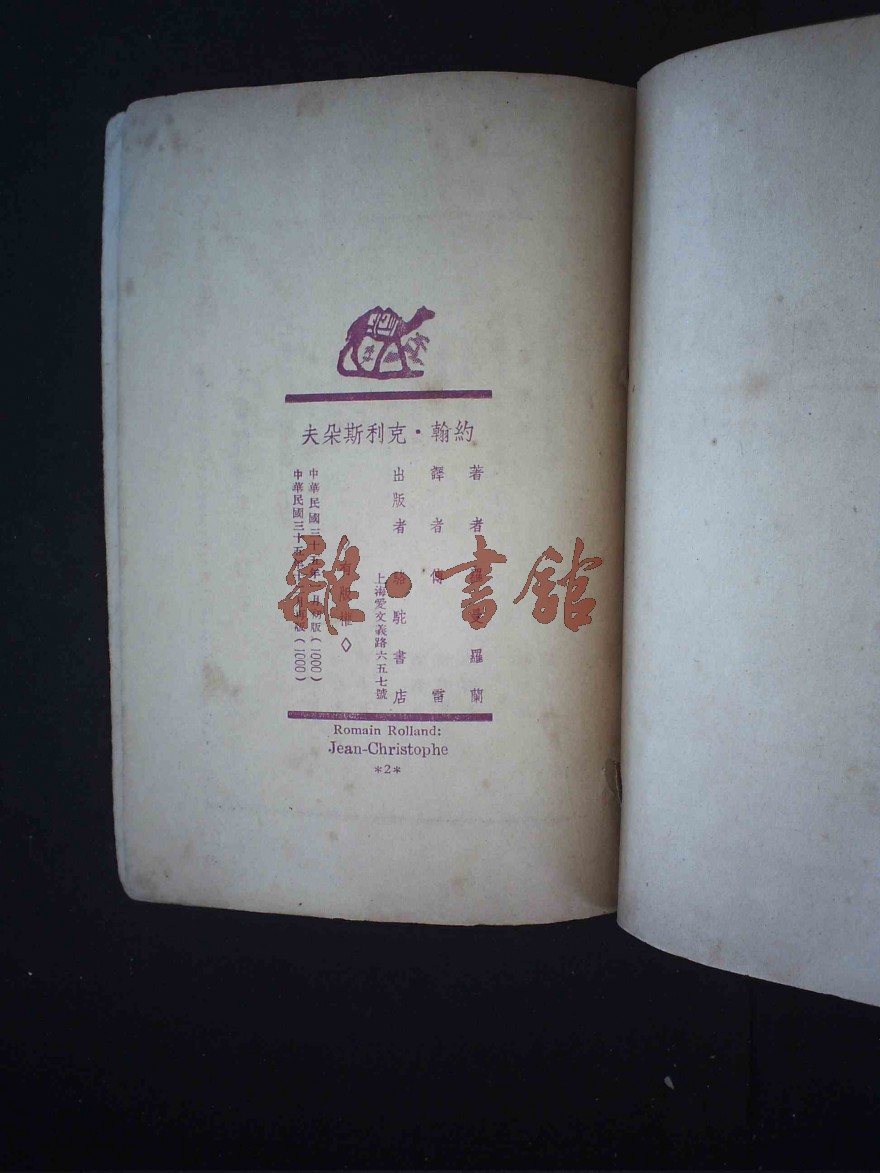 約翰·克利斯朵夫
著者 羅曼羅蘭
譯者 傅雷
出版者 駱駝書店
上海愛文義路六五七號
有版權◇
中華民國三十五年 月初版(1000)
中華民國三十五年 月再版(1000)
Romain Rolland:
Jean-Christophe
*2*
雜·書舘